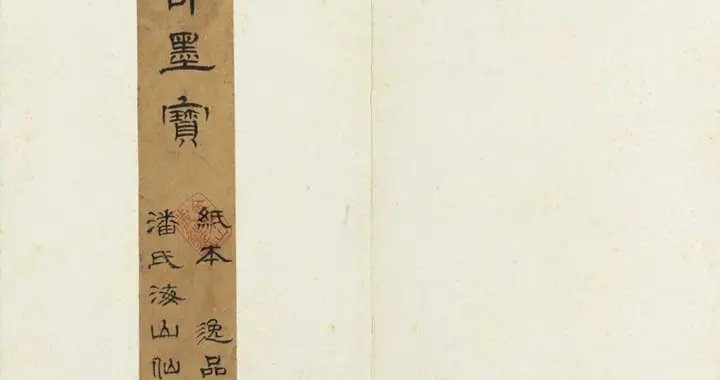 墨寶
紙本 逸品
潘氏海山仙